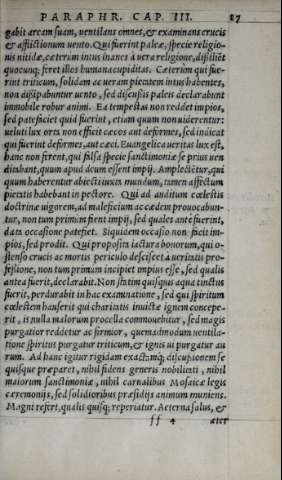 PARAPHR. CAP. III. 87
gabit aream suam, uentilans omnes, & examinans crucis
& afflictionum uento. Qui fuerint paleæ, specie religio-
nis nitidæ, cæterùm intus inanes à uera religione, dissiliẽt
quocunq; feret illos humana cupiditas. Cæterùm qui fue-
rint triticum, solidam ac ueram pietatem intus habentes,
non dissipabuntur uento, sed discussis paleis declarabunt
immobile robur animi. Ea tempestas non reddet impios,
sed patefaciet quid fuerint, etiam quum non uiderentur:
ueluti lux orta non efficit cæcos aut deformes, sed indicat
qui fuerint deformes, aut cæci. Euangelica ueritas lux est,
hanc non ferent, qui falsa specie sanctimoniæ se prius uen
ditabant, quum apud deum essent impij. Amplectẽtur, qui
quum haberentur abiecti iuxta mundum, tamen affectum
pietatis habebant in pectore. Qui ad auditum cœlestis
doctrinæ uigorem, ad maleficium ac cædem prouocabun-
tur, non tum primùm fient impij, sed quales ante fuerint,
data occasione patefiet. Siquidem occasio non facit im-
pios, sed prodit. Qui proposita iactura bonorum, qui o-
stenso crucis ac mortis periculo desciscet à ueritatis pro-
fessione, non tum primum incipiet impius esse, sed qualis
antea fuerit, declarabit. Non statim quisquis aqua tinctus
fuerit, perdurabit in hac examinatione, sed qui spiritum
cœlestem hauserit qui charitatis inuictæ ignem concepe-
rit, is nulla malorum procella commouebitur, sed magis
purgatior reddetur ac firmior, quemadmodum uentila-
tione spiritus purgatur triticum, & ignis ui purgatur au
rum. Ad hanc igitur rigidam exactamq; discussionem se
quisque præparet, nihil fidens generis nobilitati, nihil
maiorum sanctimoniæ, nihil carnalibus Mosaicæ legis
cæremonijs, sed solidioribus præsidijs animum muniens.
Magni refert, qualis quisq; reperiatur. Aeterna salus, &
ff 4 æter